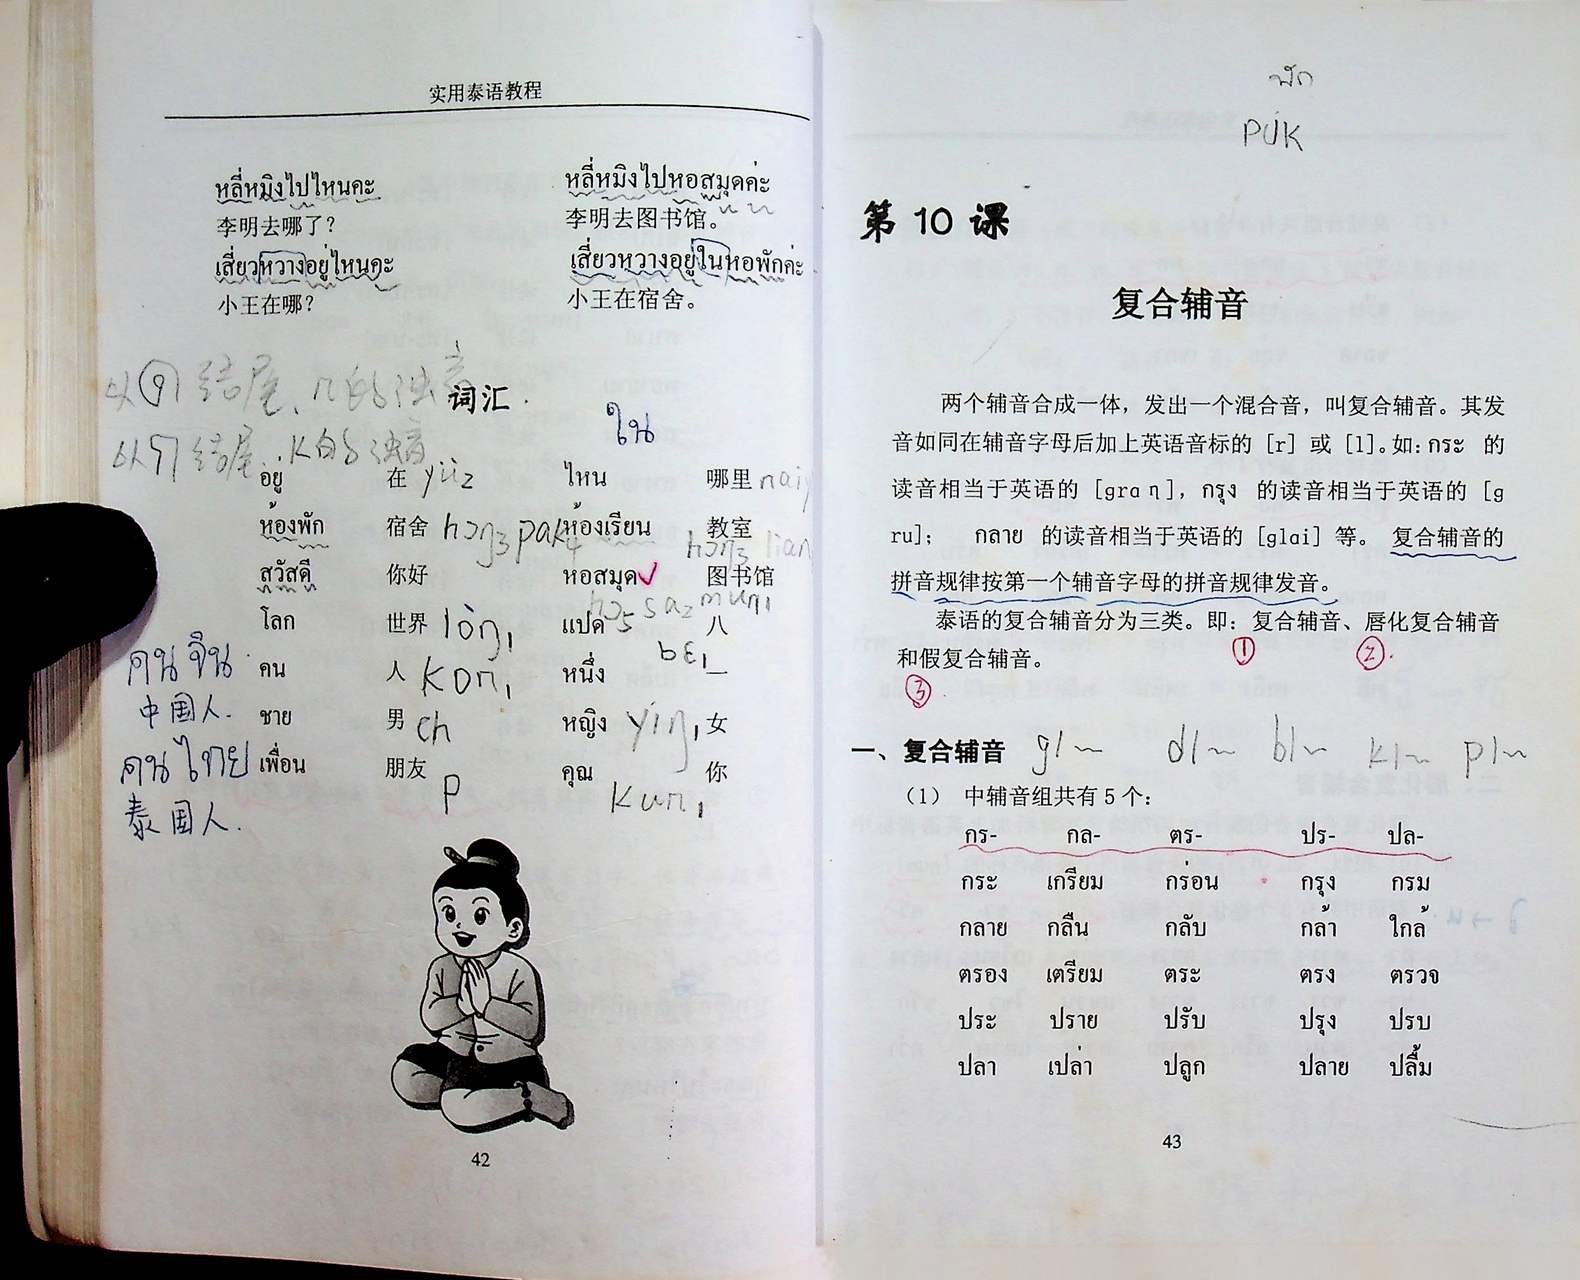 实用泰语教程
หลี่หมิงไปไหนคะ
หลี่หมิงไปหอสมุดค่ะ
李明去哪了？
李明去图书馆。
เสี่ยวหวางอยู่ไหนคะ
เสี่ยวหวางอยู่ในหอพักค่ะ
小王在哪？
小王在宿舍。
结尾、n的浊音
词汇
ใน
以 ก 结尾. K的浊音
อยู่ 在 yii2 ไหน 哪里 naiy
ห้องพัก 宿舍 hɔŋ3 pak4 ห้องเรียน 教室 hɔŋ3 lian
สวัสดี 你好 หอสมุด 图书馆
hɔ5 sa2
โลก 世界 lòŋ1 แปด 八
bɛ1
คนจีน คน 人 kon1 หนึ่ง 一
中国人. ชาย 男 ch หญิง yiŋ1 女
คนไทย เพื่อน 朋友 p คุณ kun1 你
泰国人.
42
พัก
PUK
第 10 课
复合辅音
两个辅音合成一体，发出一个混合音，叫复合辅音。其发
音如同在辅音字母后加上英语音标的［r］或［l］。如：กระ 的
读音相当于英语的［gra ŋ］，กรุง 的读音相当于英语的［g
ru］； กลาย 的读音相当于英语的［glai］等。 复合辅音的
拼音规律按第一个辅音字母的拼音规律发音。
泰语的复合辅音分为三类。即：复合辅音、唇化复合辅音
① ②
和假复合辅音。
③
一、复合辅音 gl~ dl~ bl~ kl~ pl~
（1） 中辅音组共有 5 个：
กร- กล- ตร- ปร- ปล-
กระ เกรียม กร่อน กรุง กรม
กลาย กลืน กลับ กล้า ใกล้
ตรอง เตรียม ตระ ตรง ตรวจ
ประ ปราย ปรับ ปรุง ปรบ
ปลา เปล่า ปลูก ปลาย ปลื้ม
43